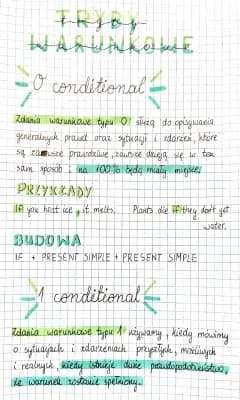 TRYBY
WARUNKOWE
0 conditional
Zdania warunkowe typu 0 służą do opisywania
generalnych prawd oraz sytuacji i zdarzeń, które
są zawsze prawdziwe, zawsze dzieją się w ten
sam sposób i na 100% będą miały miejsce.
PRZYKŁADY
If you heat ice, it melts. Plants die if they don't get
water.
BUDOWA
IF + PRESENT SIMPLE + PRESENT SIMPLE
1 conditional
Zdania warunkowe typu 1 używamy, kiedy mówimy
o sytuacjach i zdarzeniach przyszłych, możliwych
i realnych, kiedy istnieje duże prawdopodobieństwo,
że warunek zostanie spełniony.